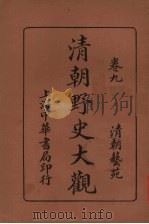 卷九 清朝藝苑
清朝野史大觀
上海中華書局印行